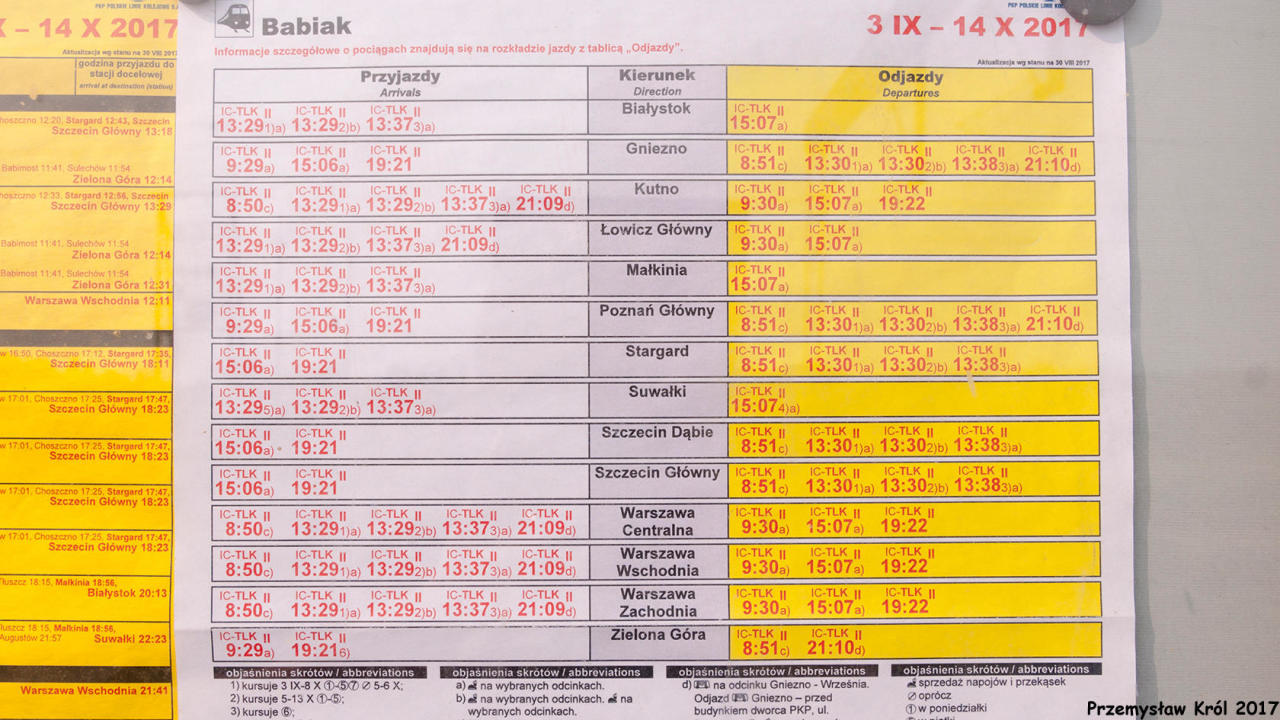 PKP POLSKIE LINIE KOLEJOWE S.A.
– 14 X 2017
Aktualizacja wg stanu na 30 VIII 2017
godzina przyjazdu do
stacji docelowej
arrival at destination (station)
12:20, Stargard 12:43, Szczecin
Szczecin Główny 13:18
Babimost 11:41, Sulechów 11:54
Zielona Góra 12:14
12:33, Stargard 12:56, Szczecin
Szczecin Główny 13:29
Babimost 11:41, Sulechów 11:54
Zielona Góra 12:14
Babimost 11:41, Sulechów 11:54
Zielona Góra 12:31
Warszawa Wschodnia 12:11
16:50, Choszczno 17:12, Stargard 17:35,
Szczecin Główny 18:11
17:01, Choszczno 17:25, Stargard 17:47,
Szczecin Główny 18:23
17:01, Choszczno 17:25, Stargard 17:47,
Szczecin Główny 18:23
17:01, Choszczno 17:25, Stargard 17:47,
Szczecin Główny 18:23
17:01, Choszczno 17:25, Stargard 17:47,
Szczecin Główny 18:23
Tłuszcz 18:15, Małkinia 18:56,
Białystok 20:13
Tłuszcz 18:15, Małkinia 18:56,
Augustów 21:57 Suwałki 22:23
Warszawa Wschodnia 21:41
PKP POLSKIE LINIE KOLEJOWE S.A.
Babiak 3 IX – 14 X 2017
Informacje szczegółowe o pociągach znajdują się na rozkładzie jazdy z tablicą „Odjazdy”.
Aktualizacja wg stanu na 30 VIII 2017
Przyjazdy Kierunek Odjazdy
Arrivals Direction Departures
IC-TLK II IC-TLK II IC-TLK II Białystok IC-TLK II
13:291)a) 13:292)b) 13:373)a) 15:07a)
IC-TLK II IC-TLK II IC-TLK II Gniezno IC-TLK II IC-TLK II IC-TLK II IC-TLK II IC-TLK II
9:29a) 15:06a) 19:21 8:51c) 13:301)a) 13:302)b) 13:383)a) 21:10d)
IC-TLK II IC-TLK II IC-TLK II IC-TLK II IC-TLK II Kutno IC-TLK II IC-TLK II IC-TLK II
8:50c) 13:291)a) 13:292)b) 13:373)a) 21:09d) 9:30a) 15:07a) 19:22
IC-TLK II IC-TLK II IC-TLK II IC-TLK II Łowicz Główny IC-TLK II IC-TLK II
13:291)a) 13:292)b) 13:373)a) 21:09d) 9:30a) 15:07a)
IC-TLK II IC-TLK II IC-TLK II Małkinia IC-TLK II
13:291)a) 13:292)b) 13:373)a) 15:07a)
IC-TLK II IC-TLK II IC-TLK II Poznań Główny IC-TLK II IC-TLK II IC-TLK II IC-TLK II IC-TLK II
9:29a) 15:06a) 19:21 8:51c) 13:301)a) 13:302)b) 13:383)a) 21:10d)
IC-TLK II IC-TLK II Stargard IC-TLK II IC-TLK II IC-TLK II IC-TLK II
15:06a) 19:21 8:51c) 13:301)a) 13:302)b) 13:383)a)
IC-TLK II IC-TLK II IC-TLK II Suwałki IC-TLK II
13:295)a) 13:292)b) 13:373)a) 15:074)a)
IC-TLK II IC-TLK II Szczecin Dąbie IC-TLK II IC-TLK II IC-TLK II IC-TLK II
15:06a) 19:21 8:51c) 13:301)a) 13:302)b) 13:383)a)
IC-TLK II IC-TLK II Szczecin Główny IC-TLK II IC-TLK II IC-TLK II IC-TLK II
15:06a) 19:21 8:51c) 13:301)a) 13:302)b) 13:383)a)
IC-TLK II IC-TLK II IC-TLK II IC-TLK II IC-TLK II Warszawa IC-TLK II IC-TLK II IC-TLK II
8:50c) 13:291)a) 13:292)b) 13:373)a) 21:09d) Centralna 9:30a) 15:07a) 19:22
IC-TLK II IC-TLK II IC-TLK II IC-TLK II IC-TLK II Warszawa IC-TLK II IC-TLK II IC-TLK II
8:50c) 13:291)a) 13:292)b) 13:373)a) 21:09d) Wschodnia 9:30a) 15:07a) 19:22
IC-TLK II IC-TLK II IC-TLK II IC-TLK II IC-TLK II Warszawa IC-TLK II IC-TLK II IC-TLK II
8:50c) 13:291)a) 13:292)b) 13:373)a) 21:09d) Zachodnia 9:30a) 15:07a) 19:22
IC-TLK II IC-TLK II Zielona Góra IC-TLK II IC-TLK II
9:29a) 19:216) 8:51c) 21:10d)
objaśnienia skrótów / abbreviations
1) kursuje 3 IX-8 X ①-⑤⑦ ⊘ 5-6 X;
2) kursuje 5-13 X ①-⑤;
3) kursuje ⑥;
objaśnienia skrótów / abbreviations
a) na wybranych odcinkach.
b) na wybranych odcinkach. na
wybranych odcinkach.
objaśnienia skrótów / abbreviations
d) na odcinku Gniezno - Września.
Odjazd Gniezno – przed
budynkiem dworca PKP, ul.
objaśnienia skrótów / abbreviations
sprzedaż napojów i przekąsek
⊘ oprócz
① w poniedziałki
Przemysław Król 2017